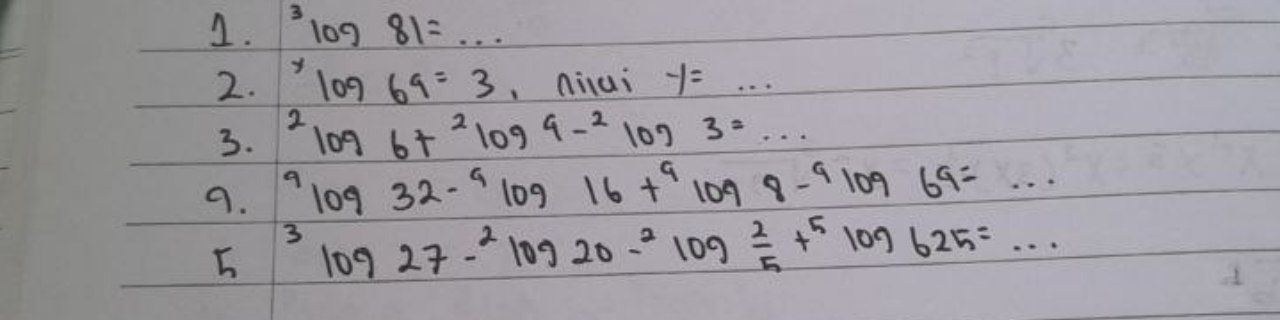 1. ³log 81= ...
2. ʸlog 64= 3, nilai y= ...
3. ²log 6+ ²log 4-²log 3= ...
4. ⁴log 32-⁴log 16 +⁴log 8-⁴log 64= ...
5 ³log 27-²log 20-²log 2/5 +⁵log 625= ...